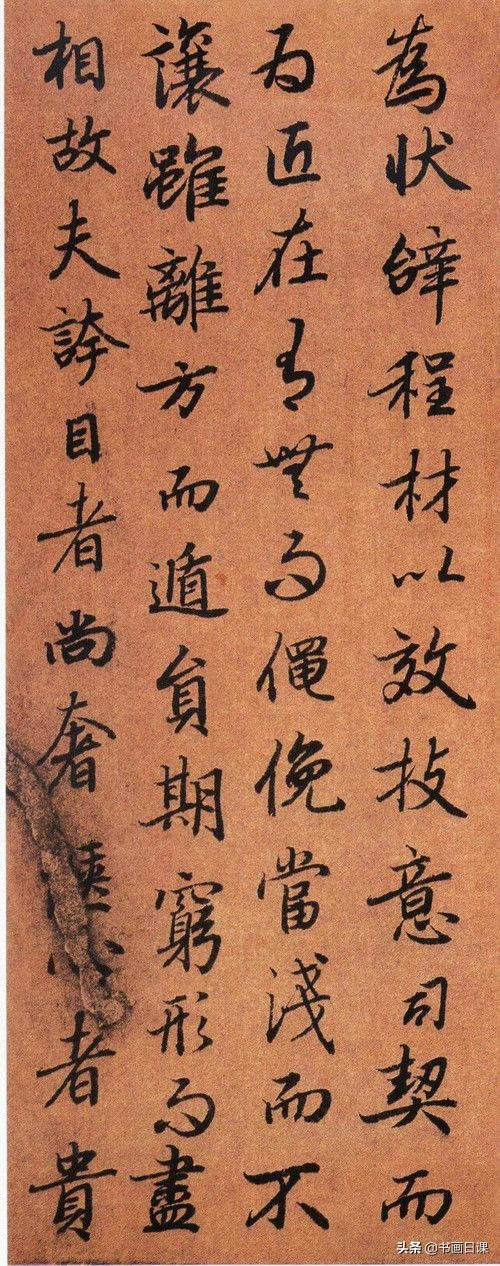 為狀辤程材以效技意司契而
為匠在有無而僶俛當淺而不
讓雖離方而遁員期窮形而盡
相故夫誇目者尚奢愜心者貴
头条 @书画日课